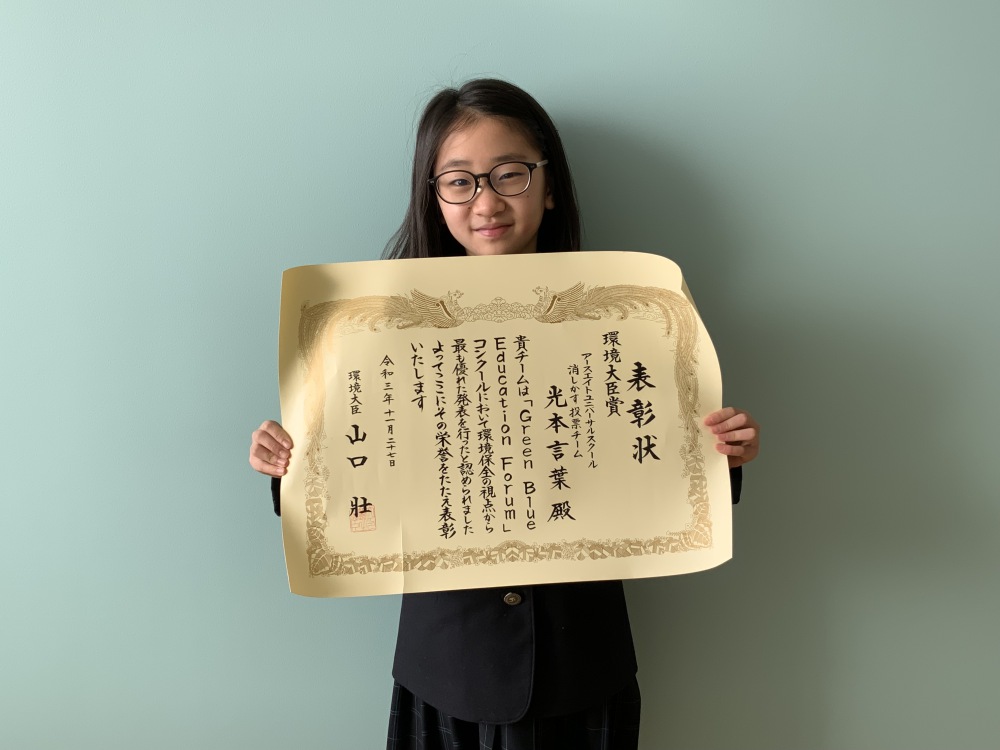 表彰状
環境大臣賞
アースエイトユニバーサルスクール
消しかす投票チーム
光本言葉 殿
貴チームは「Green Blue
Education Forum」
コンクールにおいて環境保全の視点から
最も優れた発表を行ったと認められました
よってここにその栄誉をたたえ表彰
いたします
令和三年十一月二十七日
環境大臣 山口 壯